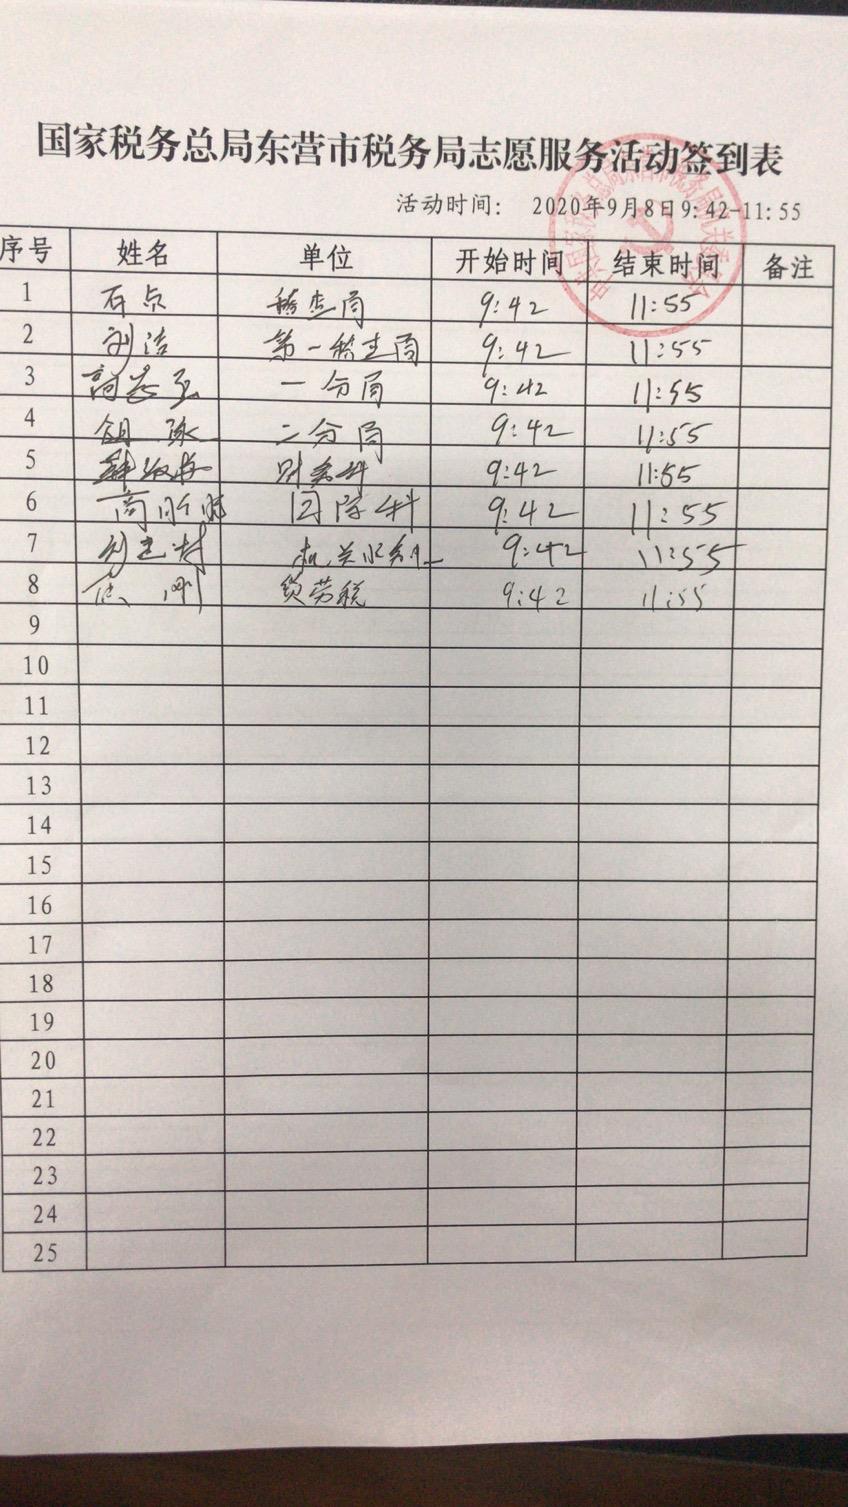 国家税务总局东营市税务局志愿服务活动签到表
活动时间： 2020年9月8日9:42-11:55
序号 姓名 单位 开始时间 结束时间 备注
1 石点 稽查局 9:42 11:55
2 刘洁 第一稽查局 9:42 11:55
3 一分局 9:42 11:55
4 二分局 9:42 11:55
5 9:42 11:55
6 9:42 11:55
7 9:42 11:55
8 货劳税 9:42 11:55
9
10
11
12
13
14
15
16
17
18
19
20
21
22
23
24
25